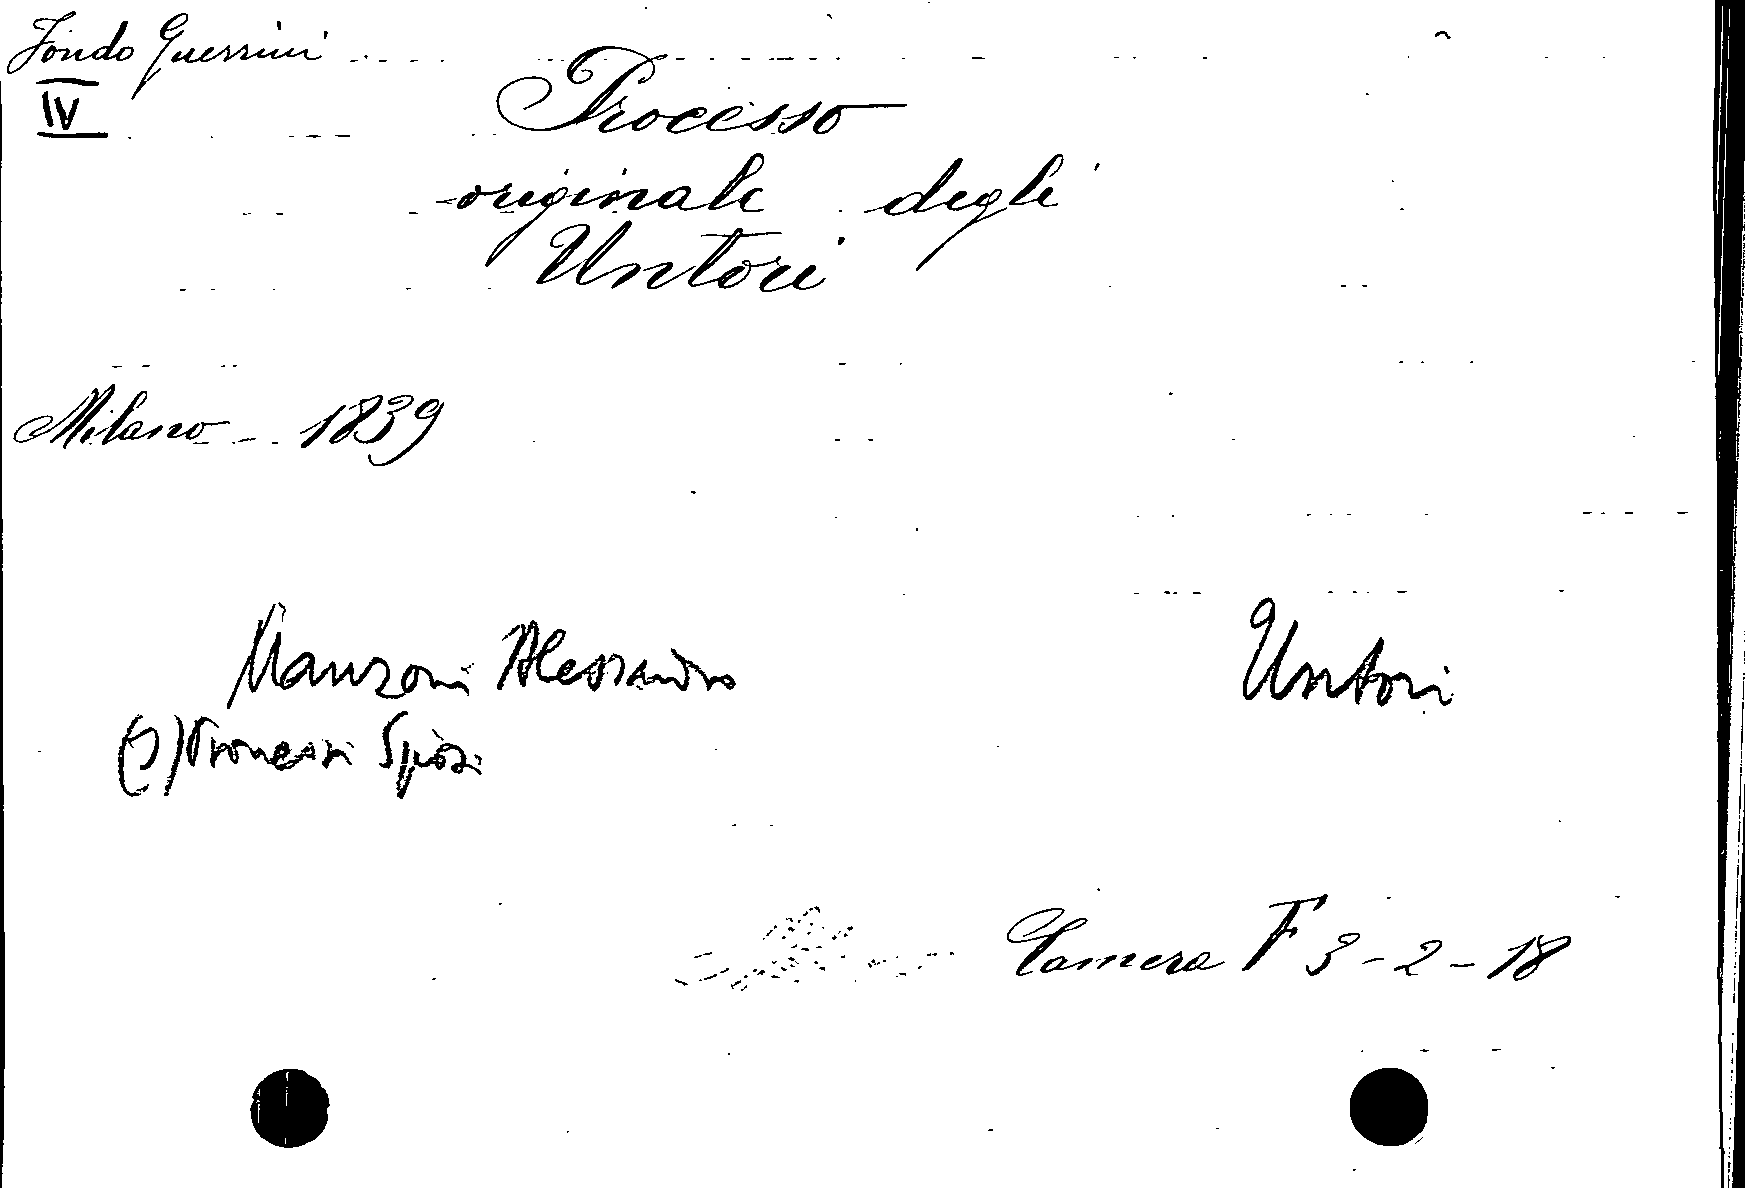 Fondo Guerrini
IV
Processo
originale degli
Untori
Milano - 1839
Manzoni Alessandro
Untori
(I) Promessi Sposi
Camera F 3-2-18